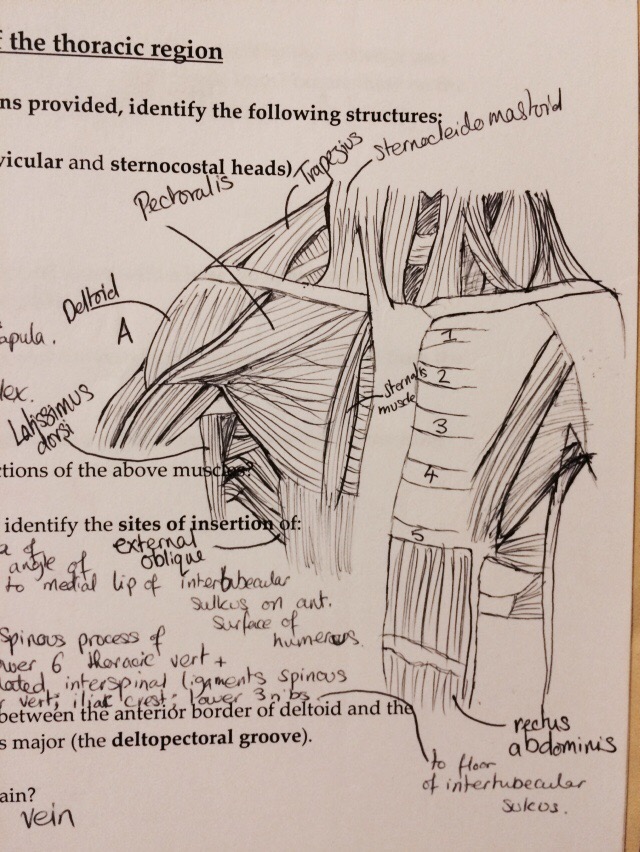 f the thoracic region
ns provided, identify the following structures:
vicular and sternocostal heads)
Trapezius
Sternocleidomastoid
Pectoralis
Deltoid
A
apula.
lex.
Latissimus
dorsi
sternalis
muscle
1
2
3
4
5
ctions of the above muscles?
identify the sites of insertion of:
external
oblique
a of
angle of
to medial lip of intertubecular
sulkus on ant.
surface of
humerous.
Spinous process of
wer 6 thoracic vert +
lated interspinal ligaments spinous
r vert; iliac crest; lower 3 ribs
between the anterior border of deltoid and the
s major (the deltopectoral groove).
rectus
abdominis
to floor
of intertubecular
sulcus.
ain?
vein